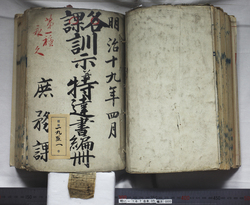 明治十九年四月
各課訓示幷特達書編冊
庶務課
第一種
永久